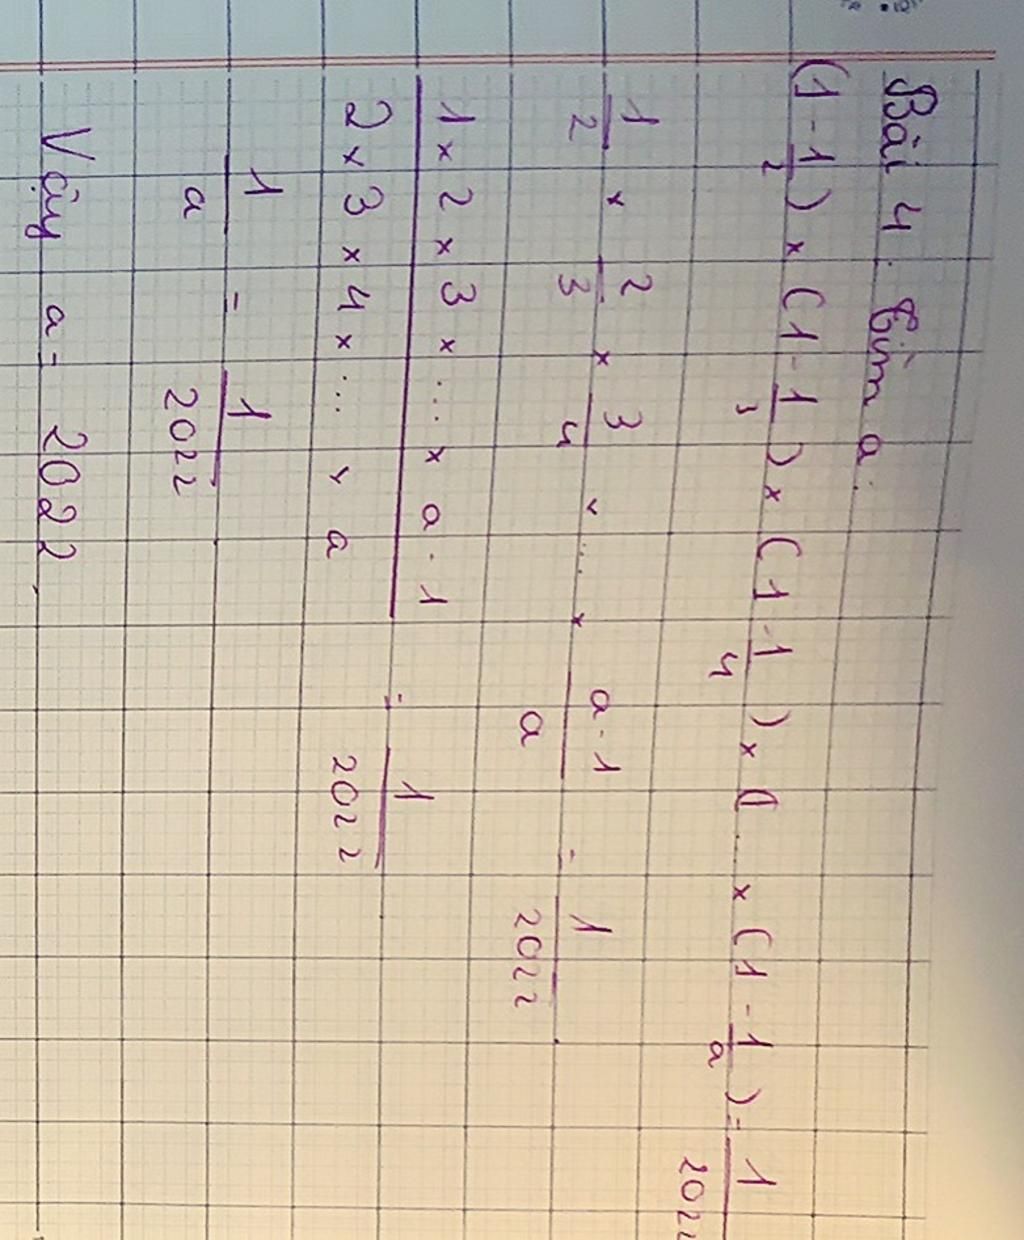 Bài 4. Tìm a:
(1 - 1/2) × (1 - 1/3) × (1 - 1/4) × (... × (1 - 1/a) = 1/2022
1/2 × 2/3 × 3/4 × .... × a-1/a = 1/2022
1 × 2 × 3 × .... × a-1 / 2 × 3 × 4 × .... × a = 1/2022
1/a = 1/2022
Vậy a = 2022.